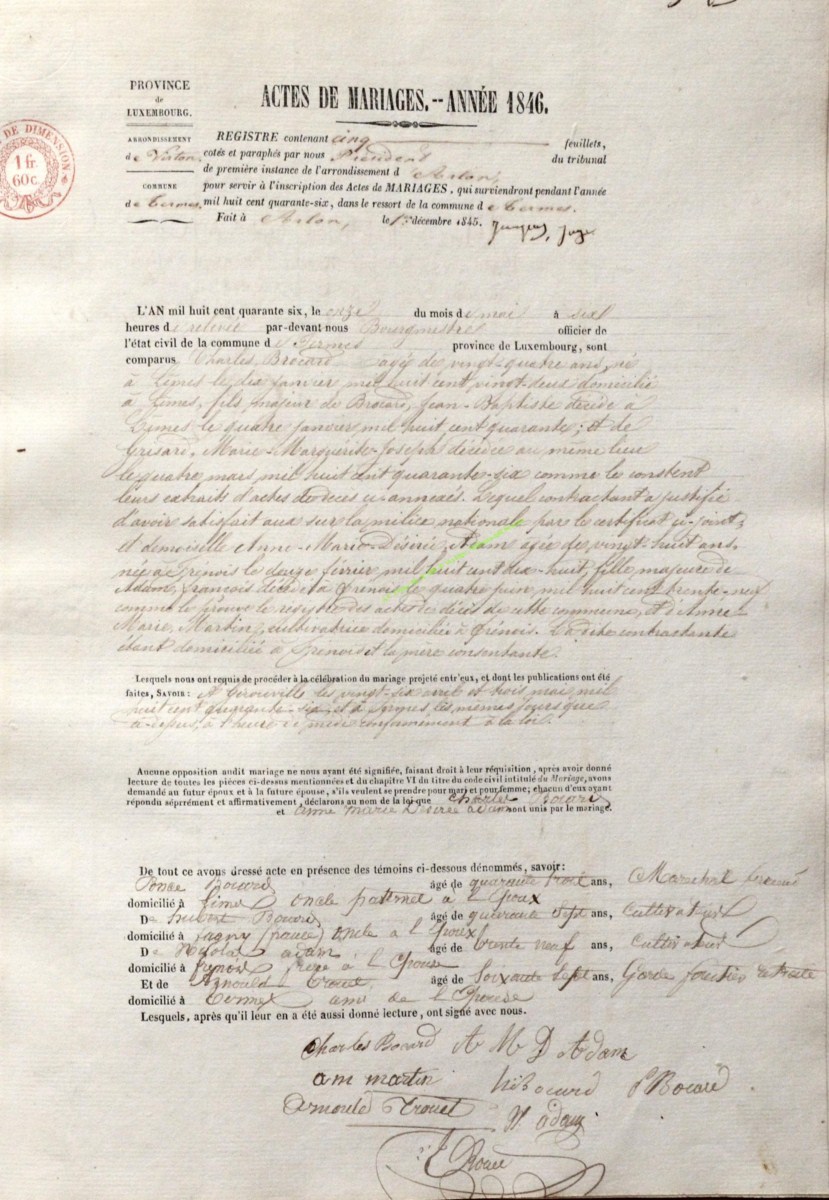 PROVINCE
de
LUXEMBOURG.
ARRONDISSEMENT
de Virton,
COMMUNE
de Termes,
DE DIMENSION
1 fr
60 c.
ACTES DE MARIAGES.--ANNÉE 1846.
REGISTRE contenant cinq feuillets,
cotés et paraphés par nous Président du tribunal
de première instance de l'arrondissement d Arlon,
pour servir à l'inscription des Actes de MARIAGES, qui surviendront pendant l'année
mil huit cent quarante-six, dans le ressort de la commune de Termes.
Fait à Arlon, le 1er décembre 1845.
L'AN mil huit cent quarante six, le onze du mois de mai à six
heures de relevée par-devant nous Bourgmestre officier de
l'état civil de la commune de Termes province de Luxembourg, sont
comparus Charles Brocard agé de vingt-quatre ans, né
à Limes le dix janvier mil huit cent vingt-deux domicilié
à Limes, fils majeur de Brocard, Jean-Baptiste décédé à
Limes le quatre janvier mil huit cent quarante; et de
Grisard, Marie-Marguerite-Joseph décédée au même lieu
le quatre mars mil huit cent quarante-six comme le constent
leurs extraits d'actes de décès ci-annexés. Lequel contractant a justifié
d'avoir satisfait aux sur la milice nationale par le certificat ci-joint;
et demoiselle Anne-Marie-Désirée, Adam agée de vingt-huit ans,
née à Frenois le douze février mil huit cent dix-huit, fille majeure de
Adam, François décédé à Frenois le quatre juin mil huit cent trente-neuf
comme le prouve le registre des actes de décès de cette commune, et d'Anne
Marie, Martin, cultivatrice domiciliée à Frénois. La dite contractante
étant domiciliée à Frenois et la mère consentante.
Lesquels nous ont requis de procéder à la célébration du mariage projeté entr'eux, et dont les publications ont été
faites, SAVOIR: A Gerouville les vingt-six avril et trois mai mil
huit cent quarante-six et à Termes, les mêmes jours que
ci-dessus, à l'heure de midi conformément à la loi.
Aucune opposition audit mariage ne nous ayant été signifiée, faisant droit à leur réquisition, après avoir donné
lecture de toutes les pièces ci-dessus mentionnées et du chapitre VI du titre du code civil intitulé du Mariage, avons
demandé au futur époux et à la future épouse, s'ils veulent se prendre pour mari et pour femme; chacun d'eux ayant
répondu séprrément et affirmativement, déclarons au nom de la loi que Charles Bocard
et anne marie Désirée adam sont unis par le mariage.
De tout ce avons dressé acte en présence des témoins ci-dessous dénommés, savoir:
Ponce Bocard âgé de quarante trois ans, Marechal ferrand
domicilié à Limes oncle paternel à l Epoux
De hubert Bocard âgé de quarante sept ans, Cultivateur
domicilié à fagny (france) oncle à l Epoux
De Nicolas adam âgé de trente neuf ans, Cultivateur
domicilié à frenois frere à l Epouse
Et de Arnould Trouet, âgé de Soixante Sept ans, Garde forestier retraité
domicilié à Termes ami de l Epouse
Lesquels, après qu'il leur en a été aussi donné lecture, ont signé avec nous.
Charles Bocard A M D Adam
a m martin h bocard P Bocard
Arnould Trouet N. adam